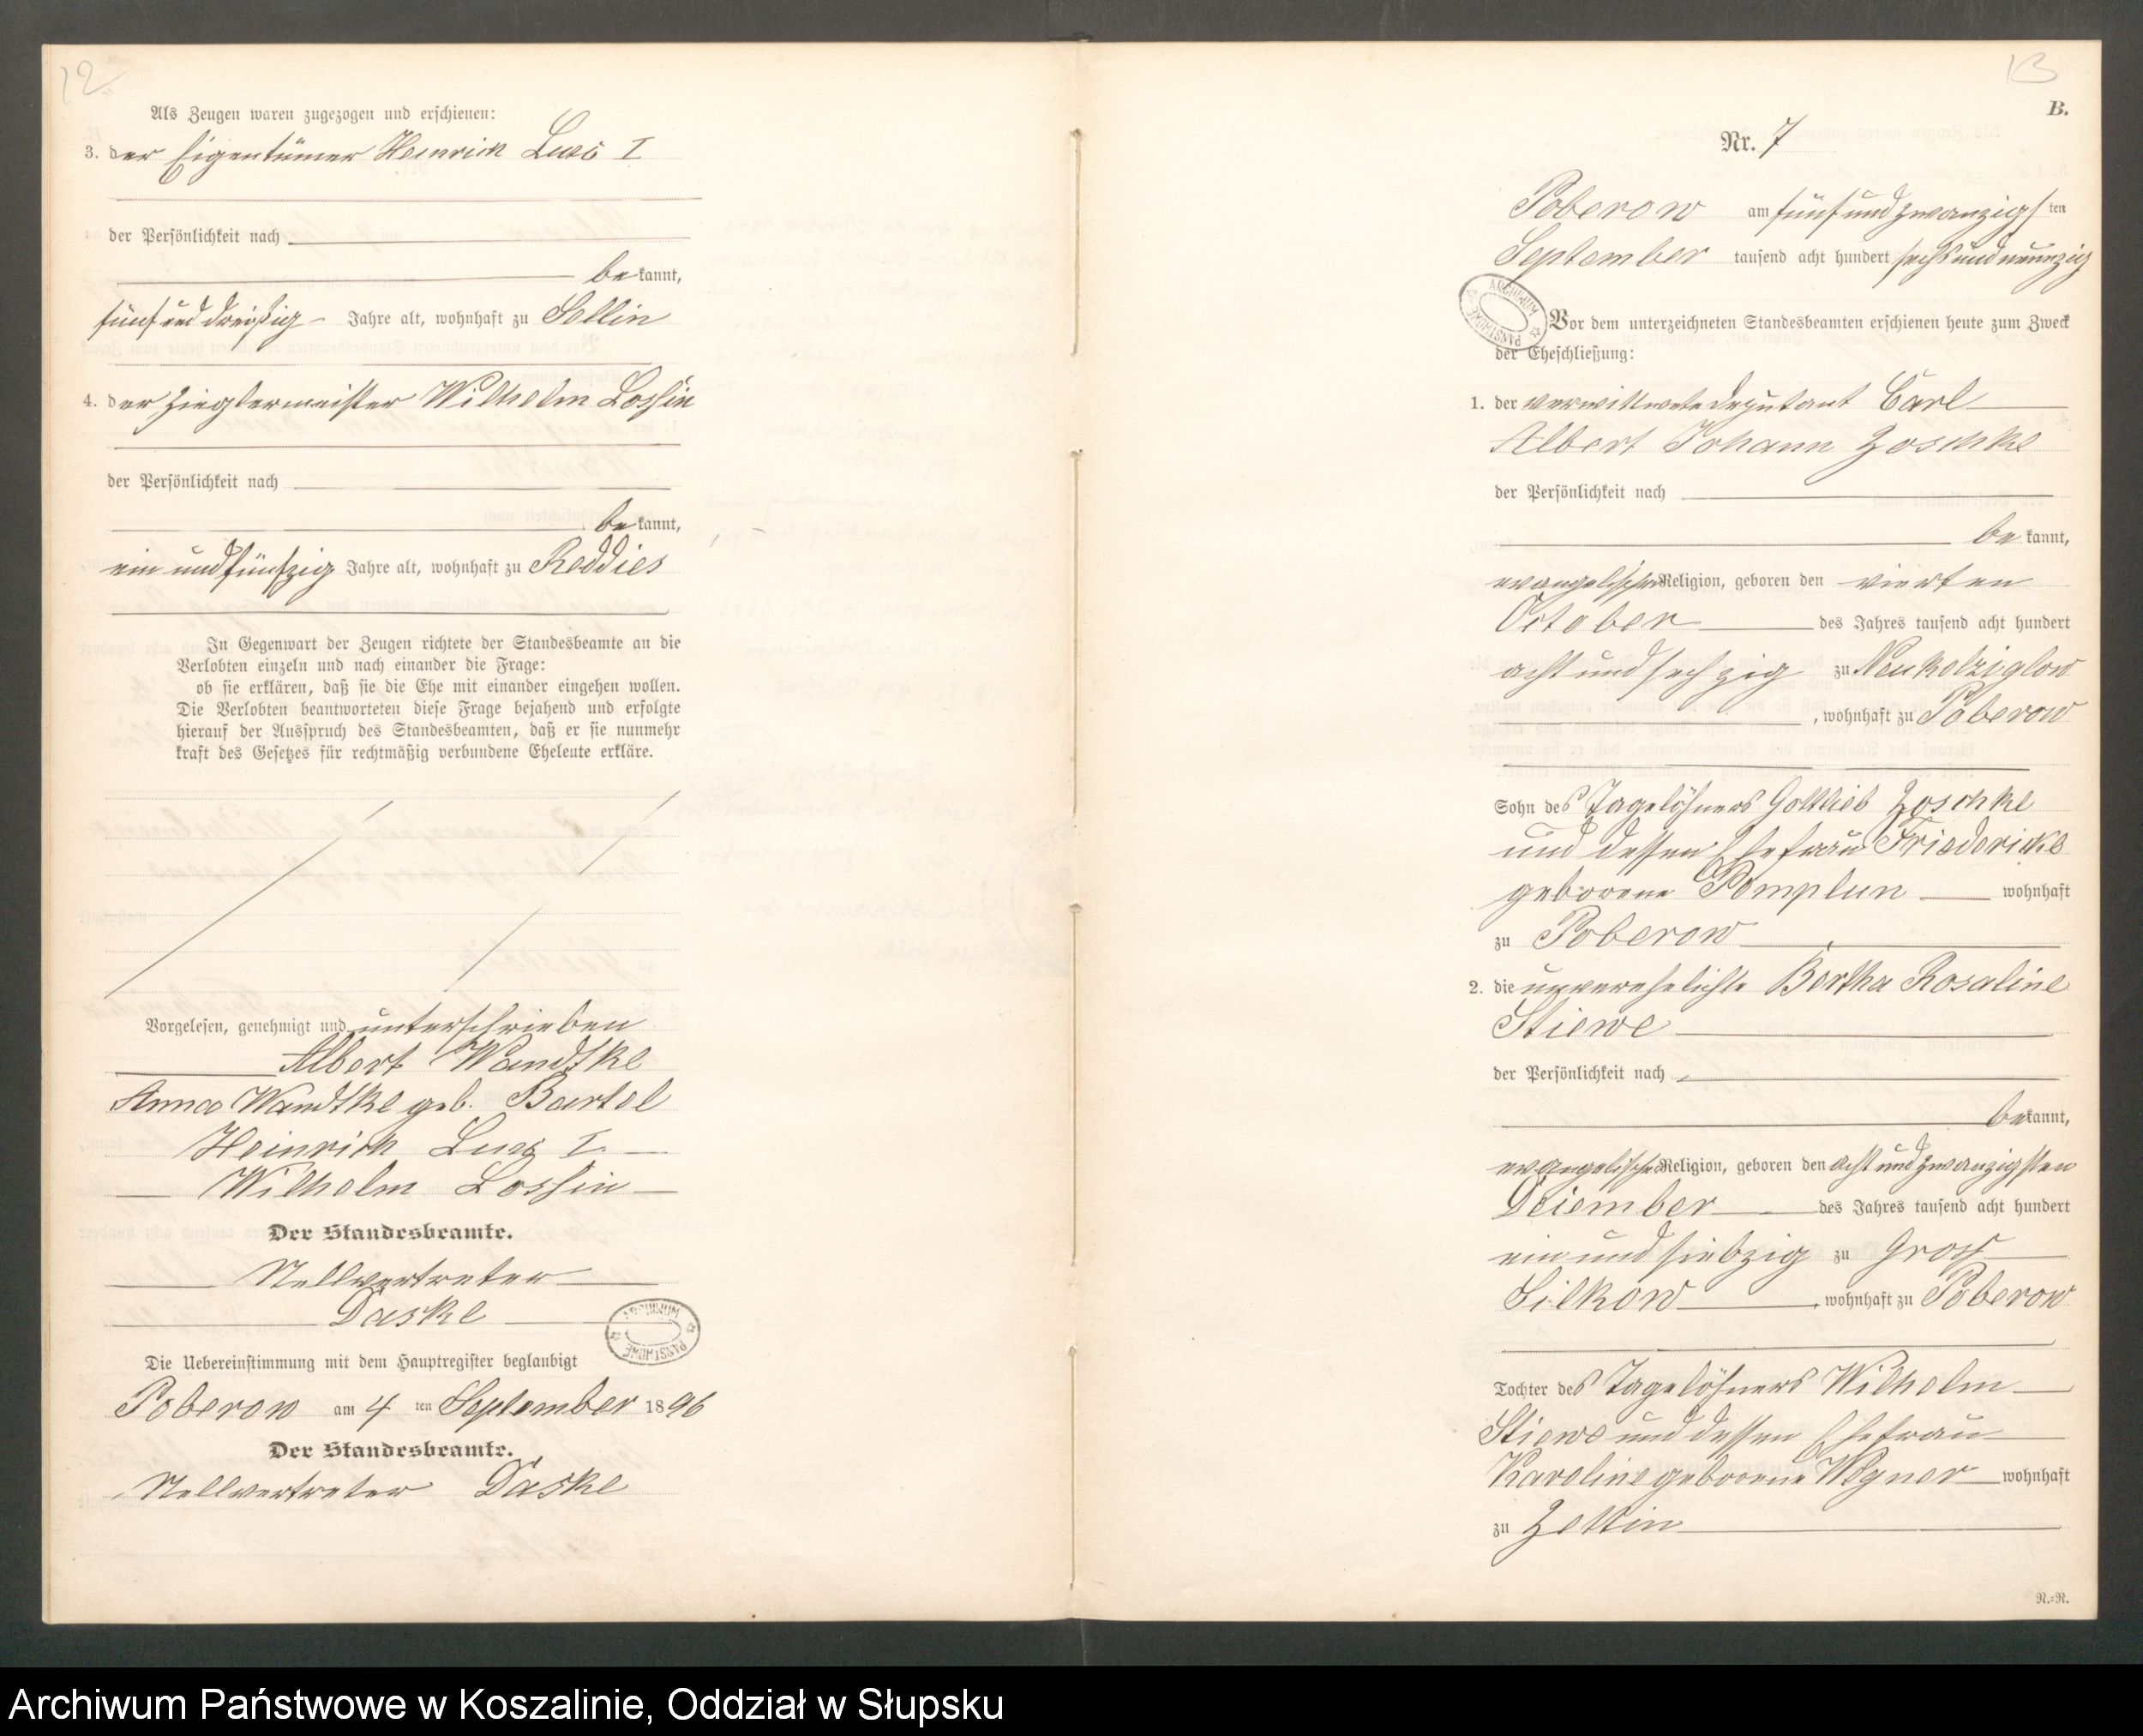 12
Als Zeugen waren zugezogen und erschienen:
3. der Eigentümer Heinrich I
der Persönlichkeit nach
bekannt,
fünf und dreißig Jahre alt, wohnhaft zu Sellin
4. der Zieglermeister Wilhelm Lossin
der Persönlichkeit nach
bekannt,
ein und fünfzig Jahre alt, wohnhaft zu Reddies
In Gegenwart der Zeugen richtete der Standesbeamte an die
Verlobten einzeln und nach einander die Frage:
ob sie erklären, daß sie die Ehe mit einander eingehen wollen.
Die Verlobten beantworteten diese Frage bejahend und erfolgte
hierauf der Ausspruch des Standesbeamten, daß er sie nunmehr
kraft des Gesetzes für rechtmäßig verbundene Eheleute erkläre.
Vorgelesen, genehmigt und unterschrieben
Albert Wandtke
Anna Wandtke geb. Bartel
Heinrich I.
Wilhelm Lossin
Der Standesbeamte.
Stellvertreter
Daske
ARCHIWUM PAŃSTWOWE
Die Uebereinstimmung mit dem Hauptregister beglaubigt
Poberow am 4 ten September 1896
Der Standesbeamte.
Stellvertreter Daske
13
B.
Nr. 7
Poberow am fünf und zwanzigsten
September tausend acht hundert sechs und neunzig
ARCHIWUM PAŃSTWOWE
Vor dem unterzeichneten Standesbeamten erschienen heute zum Zweck
der Eheschließung:
1. der verwittwete Deputant Carl
Albert Johann Zoschke
der Persönlichkeit nach
bekannt,
evangelischer Religion, geboren den vierten
October des Jahres tausend acht hundert
acht und sechzig zu Neu Kolziglow
, wohnhaft zu Poberow
Sohn des Tagelöhners Gottlieb Zoschke
und dessen Ehefrau Friedericke
geborene Pomplun wohnhaft
zu Poberow
2. die unverehelichte Bertha Rosaline
Stiewe
der Persönlichkeit nach
bekannt,
evangelischer Religion, geboren den acht und zwanzigsten
Dezember des Jahres tausend acht hundert
ein und siebzig zu Gross
Silkow, wohnhaft zu Poberow
Tochter des Tagelöhners Wilhelm
Stiewe und dessen Ehefrau
Karoline geborene Wegner wohnhaft
zu Zettin
N.=R.
Archiwum Państwowe w Koszalinie, Oddział w Słupsku